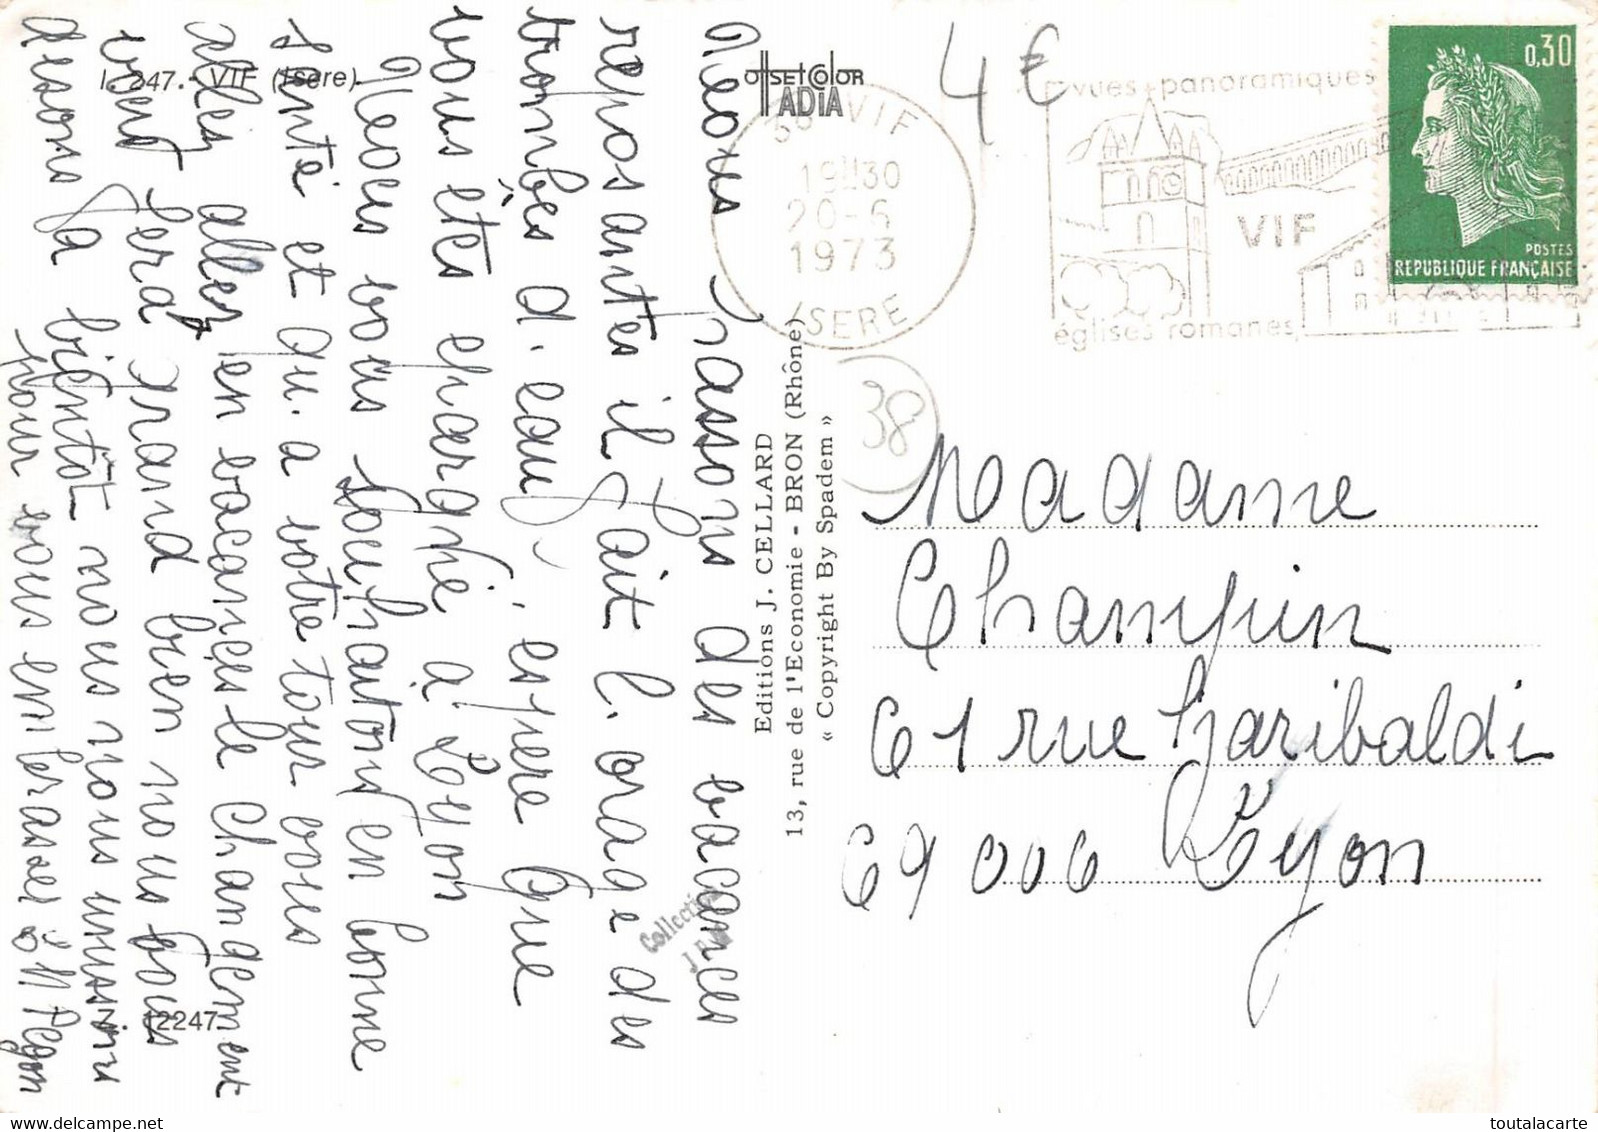 I. 247. - VIF (Isère)
Nous passons des vacances
reposantes il fait l'orage des
trombes d'eau, j'espère que
vous êtes épargné à Lyon
Nous vous souhaitons en bonne
santé et qu'a votre tour vous
allez en vacances le changement
vous fera grand bien nous vous
desons ja bientôt nous nous unissons
pour vous embrasser
N. 12247
Editions J. CELLARD
13, rue de l'Economie - BRON (Rhône)
« Copyright By Spadem »
OffSET COlOR
IADIA
Collection
4 €
38 VIF
19H30
20-6
1973
ISERE
vues panoramiques
VIF
églises romanes
0,30
POSTES
REPUBLIQUE FRANÇAISE
38
Madame
Champin
61 rue Garibaldi
69006 Lyon
toutalacarte